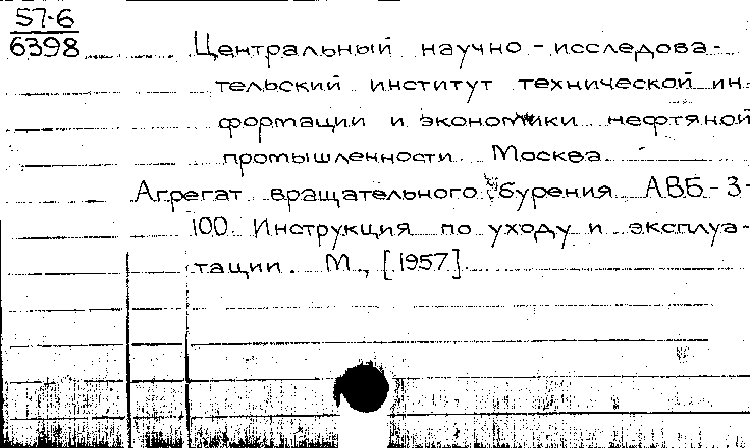 57-6
6398
Центральный научно-исследова-
тельский институт технической ин-
формации и экономики нефтяной
промышленности. Москва.
Агрегат вращательного бурения АВБ-3-
100. Инструкция по уходу и эксплуа-
тации. М., [1957].